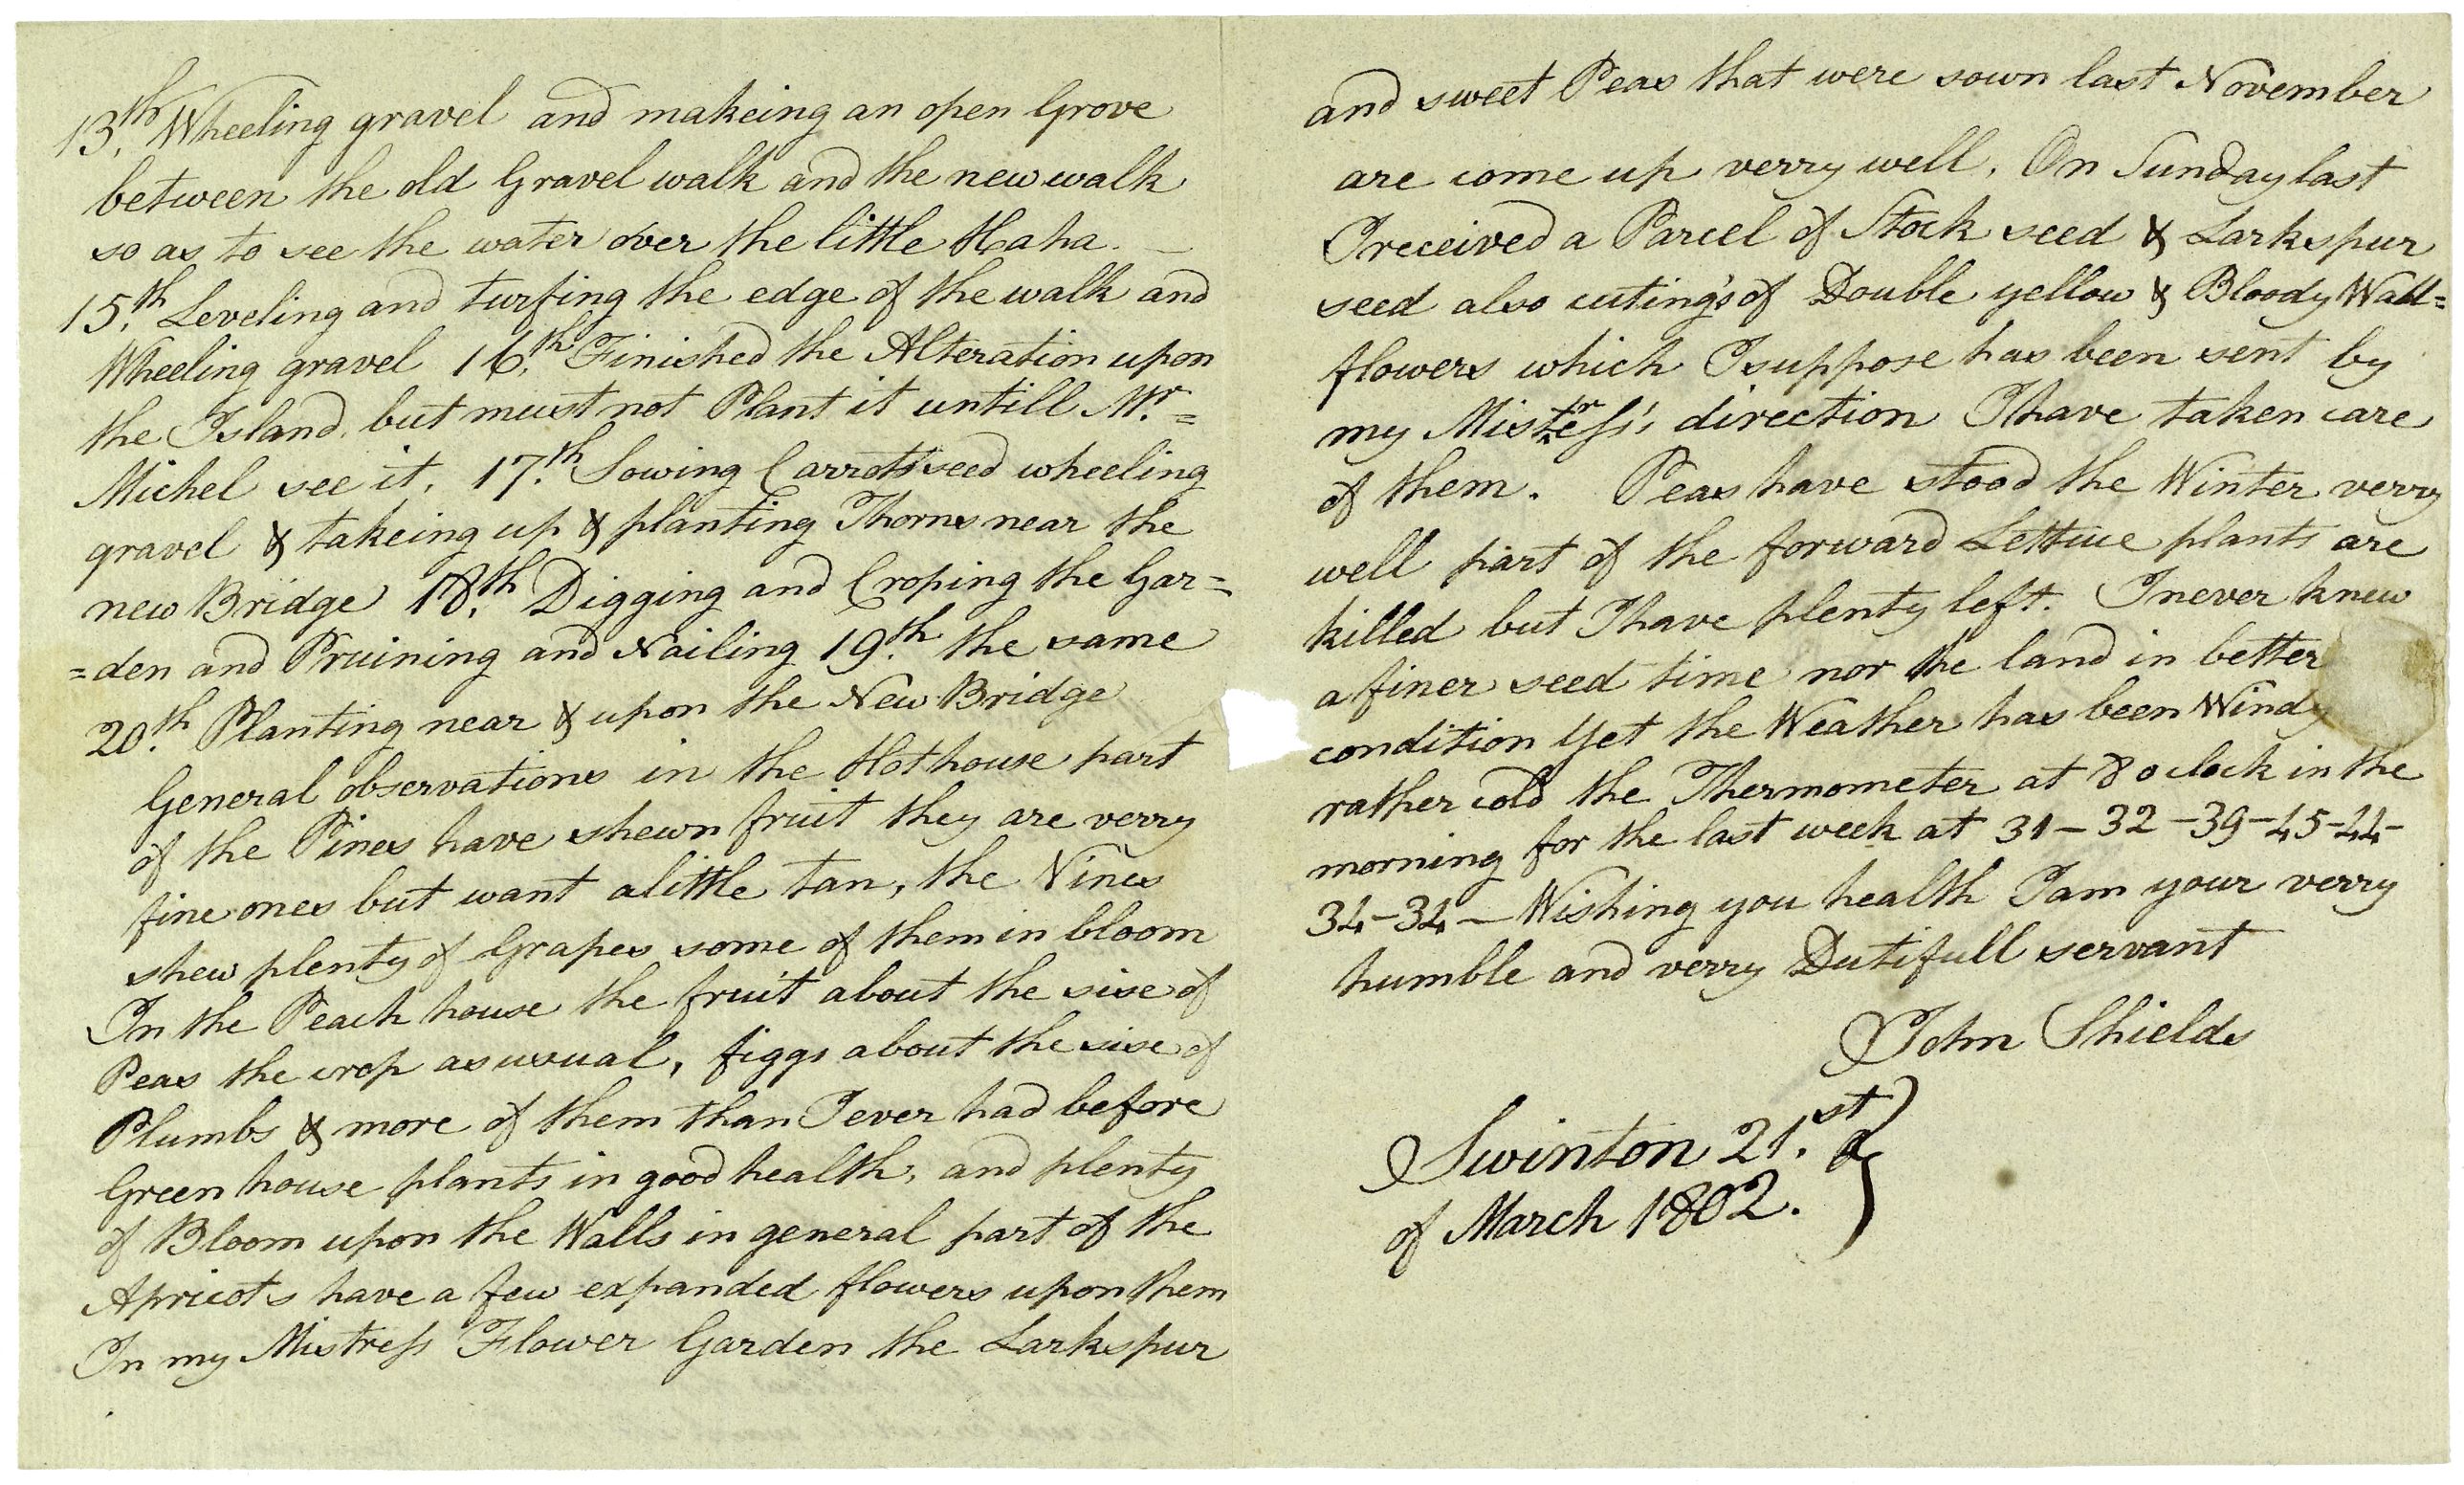 13.th Wheeling gravel and makeing an open Grove
between the old Gravel walk and the new walk
so as to see the water over the little Haha. —
15.th Leveling and turfing the edge of the walk and
Wheeling gravel 16.th Finished the Alteration upon
the Island, but must not Plant it untill Mr. =
Michel see it. 17.th Sowing Carrott seed wheeling
gravel & takeing up & planting Thorns near the
new Bridge 18.th Digging and Croping the Gar=
=den and Pruining and Nailing 19.th the same
20.th Planting near & upon the New Bridge
General observations in the Hothouse part
of the Pines have shewn fruit they are verry
fine ones but want a little tan, the Vines
shew plenty of Grapes some of them in bloom
In the Peach house the fruit about the sise of
Peas the crop as usual, figgs about the sise of
Plumbs & more of them than I ever had before
Green house plants in good health, and plenty
of Bloom upon the Walls in general part of the
Apricots have a few expanded flowers upon them
In my Mistreſs Flower Garden the Larkspur
and sweet Peas that were sown last November
are come up verry well. On Sunday last
I received a Parcel of Stock seed & Larkspur
seed also cuting's of Double yellow & Bloody Wall=
flowers which I suppose has been sent by
my Mistreſs's direction I have taken care
of them. Peas have stood the Winter verry
well part of the forward Lettuce plants are
killed but I have plenty left. I never knew
a finer seed time nor the land in better
condition Yet the Weather has been Windy
rather cold the Thermometer at 8 o clock in the
morning for the last week at 31 – 32 – 39 – 45 – 44 –
34 – 34 — Wishing you health I am your verry
humble and verry Dutifull servant
John Shields
Swinton 21.st
of March 1802.